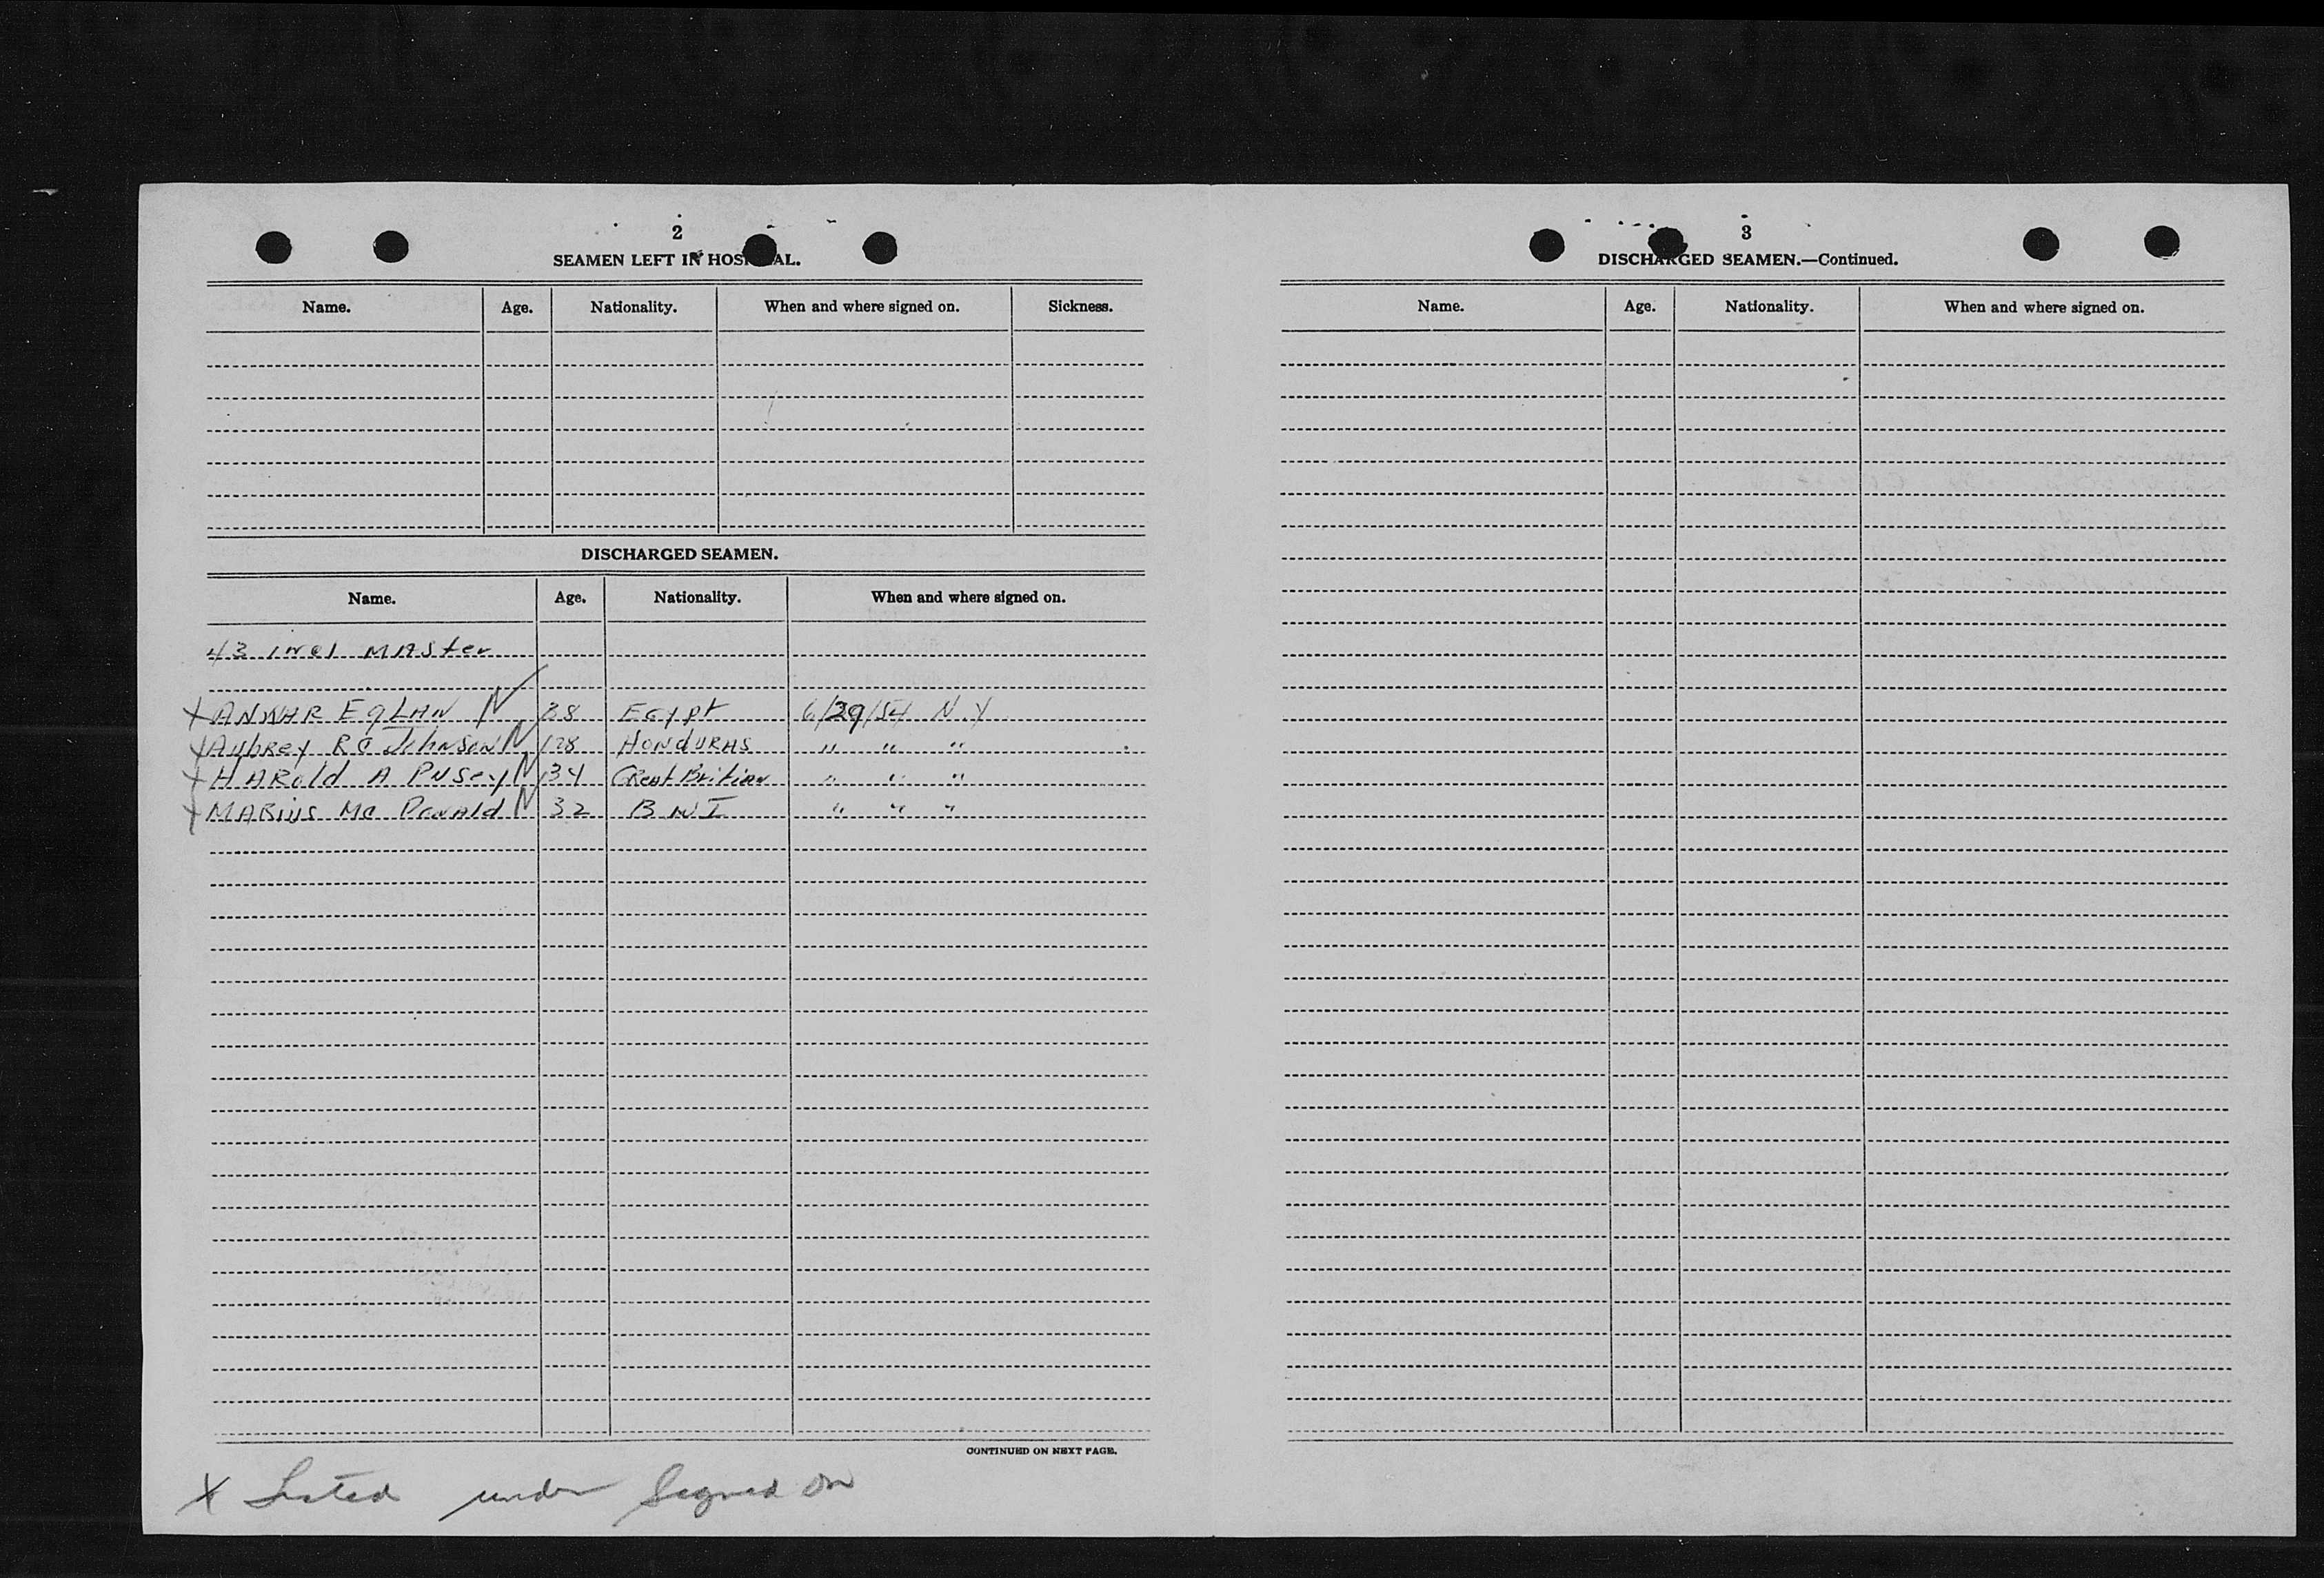 2
SEAMEN LEFT IN HOSPITAL.
Name. Age. Nationality. When and where signed on. Sickness.
DISCHARGED SEAMEN.
Name. Age. Nationality. When and where signed on.
43 incl MASter
X ANWAR EqLAN N 38 EGypt 6/29/54 N.Y
X AUbRey RC JohnSon N 28 HONdURAS " " "
X HARold A PUSey N 34 GReat Britian " " "
X MARiUS Mc DonAld N 32 B W I " " "
CONTINUED ON NEXT PAGE.
X Listed under Signed on
3
DISCHARGED SEAMEN.—Continued.
Name. Age. Nationality. When and where signed on.